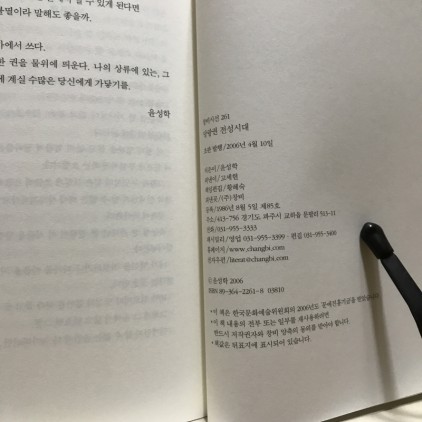 수 있게 된다면
말해도 좋을까.
에서 쓰다.
권을 물위에 띄운다. 나의 상류에 있는, 그
계실 수많은 당신에게 가닿기를.
윤성학
창비시선 261
당랑권 전성시대
초판 발행/2006년 4월 10일
지은이/윤성학
펴낸이/고세현
책임편집/황혜숙
펴낸곳/(주)창비
등록/1986년 8월 5일 제85호
주소/413-756 경기도 파주시 교하읍 문발리 513-11
전화/031-955-3333
팩시밀리/영업 031-955-3399 · 편집 031-955-3400
홈페이지/www.changbi.com
전자우편/literat@changbi.com
ⓒ 윤성학 2006
ISBN 89-364-2261-8 03810
* 이 책은 한국문화예술위원회의 2006년도 문예진흥기금을 받았습니다.
* 이 책 내용의 전부 또는 일부를 재사용하려면
반드시 저작권자와 창비 양측의 동의를 받아야 합니다.
* 책값은 뒤표지에 표시되어 있습니다.